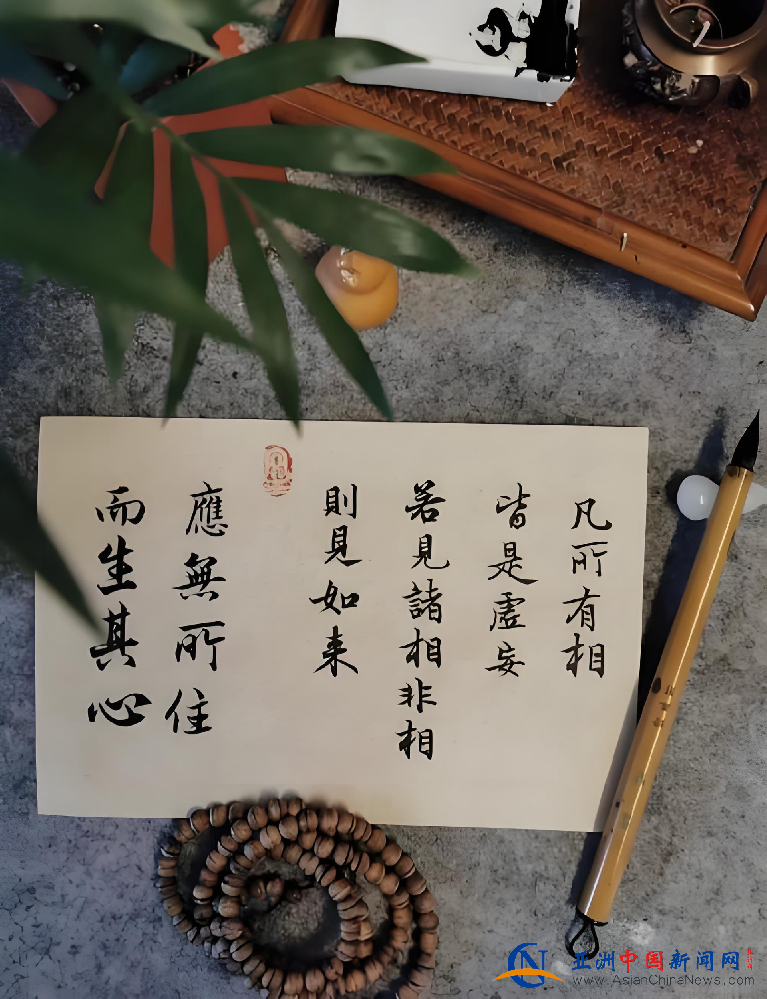 凡所有相
皆是虛妄
若見諸相非相
則見如来
應無所住
而生其心
亚洲中国新闻网
www.AsianChinaNews.com